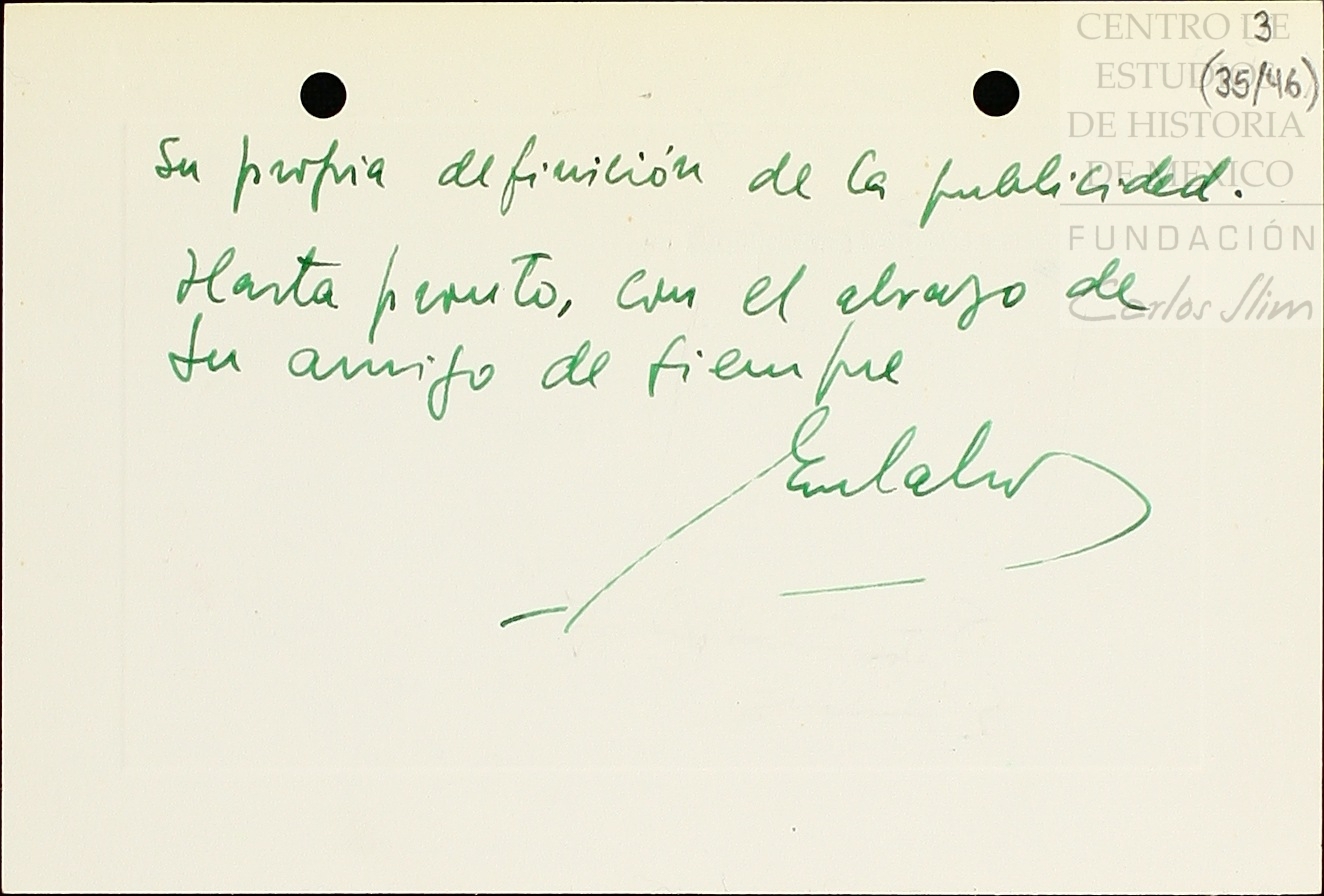 3
(35/46)
CENTRO DE
ESTUDIOS
DE HISTORIA
DE MEXICO
FUNDACIÓN
Carlos Slim
su propia definición de la publicidad.
Hasta pronto, con el abrazo de
su amigo de siempre
Eulalio